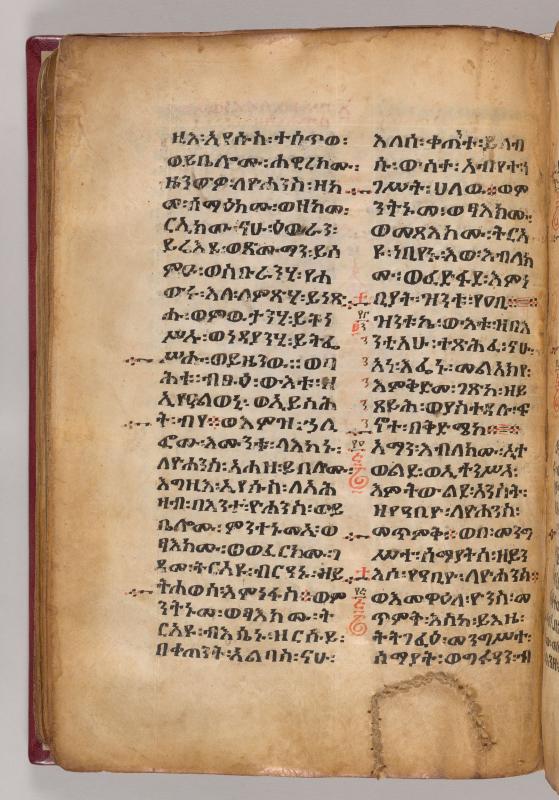 ዚአ፡ኢየሱስ፡ተሰጥወ፡
ወይቤሎሙ፡ሐዊረክሙ፡
ዜንውዎ፡ለዮሐንስ፡ዘከ
መ፡ሰማዕክሙ፡ወዘከመ፡
ርኢክሙ፡ናሁ፡ዕውራን፡
ይሬእዩ፡ወጽሙማን፡ይሰ
ምዑ፡ወስቡራንሂ፡የሐ
ውሩ፡እለ፡ለምጽሂ፡ይነጽ
ሑ፡ወምውታንሂ፡ይትነ
ሥኡ፡ወነዳያንሂ፡ይትፌ
ሥሑ፡ወይዜንው፡፡ወባ
ሕቱ፡ብፁዕ፡ውእቱ፡ዘ
ኢየዓልወኒ፡ወኢይስሕ
ት፡ብየ፡፡ወእምዝ፡ኃሊ
ፎሙ፡እሙንቱ፡ላእካኑ፡
ለዮሐንስ፡አሐዘ፡ይበሎሙ፡
እግዚእ፡ኢየሱስ፡ለአሕ
ዛብ፡በእንተ፡ዮሐንስ፡ወይ
ቤሎሙ፡ምንተኑመ፡ኢ፡ወ
ፃእክሙ፡ውወፈርክሙ፡ገ
ዳመ፡ትርአዩ፡ብርዓኑ፡ዘይ
ትሐወስ፡እምነፋስ፡፡ወም
ንትኑመ፡ወፃእክሙ፡ት
ርአዩ፡ብእሴኑ፡ዘርሱይ፡
በቀጠንት፡አልባስ፡ናሁ፡
እለሰ፡ቀጠንተ፡ይለብ
ሱ፡ውስተ፡አብያተ፡ነ
ገሥት፡ሀለው፡፡ወም
ንትኑመ፡ወፃእክሙ፡
ወመጻእክሙ፡ትርአ
ዩ፡ነቢየኑ፡እወ፡እብለክ
ሙ፡ወፈድፋደ፡እምነ
ቢያት፡ዝንቱ፡የዐቢ፡፡
ዝንቱኬ፡ውእቱ፡ዘበእ
ንቲአሁ፡ተጽሕፈ፡ናሁ፡
አነ፡እፌኑ፡መልአክየ፡
እምቅድመ፡ገጽከ፡ዘይ
ጸይሕ፡ወያስተዳሉ፡ፍ
ኖተ፡በቅድሜከ፡፡
አማን፡እብለክሙ፡ኢት
ወልደ፡ወኢትንሥአ፡
እምትውልደ፡አንስት፡
ዘየዓቢዮ፡ለዮሐንስ፡
መጥምቅ፡፡ወበ፡መንግ
ሥተ፡ሰማያትሰ፡ዘይን
እሰ፡የዓቢዮ፡ለዮሐንስ፡፡
ወእመዋዕለ፡ዮንስ፡መ
ጥምት፡እስከ፡ይእዜ፡
ትትገፈዕ፡መንግሥተ፡
ሰማያት፡ወግፉዓን፡ብ